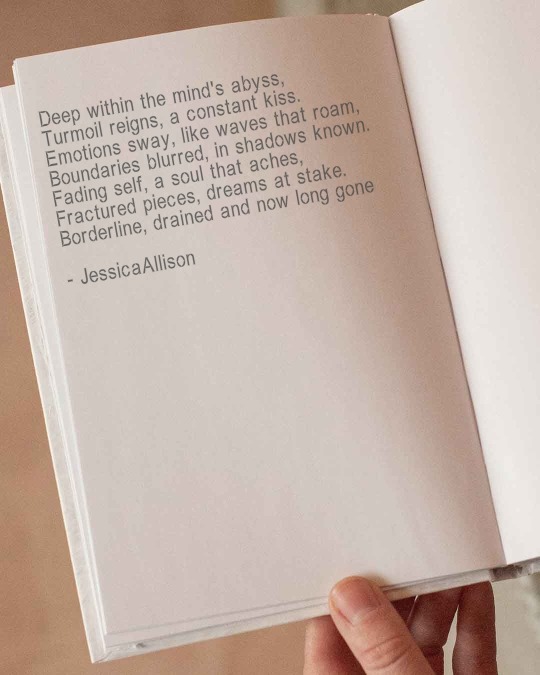 Deep within the mind's abyss,
Turmoil reigns, a constant kiss.
Emotions sway, like waves that roam,
Boundaries blurred, in shadows known.
Fading self, a soul that aches,
Fractured pieces, dreams at stake.
Borderline, drained and now long gone
- JessicaAllison